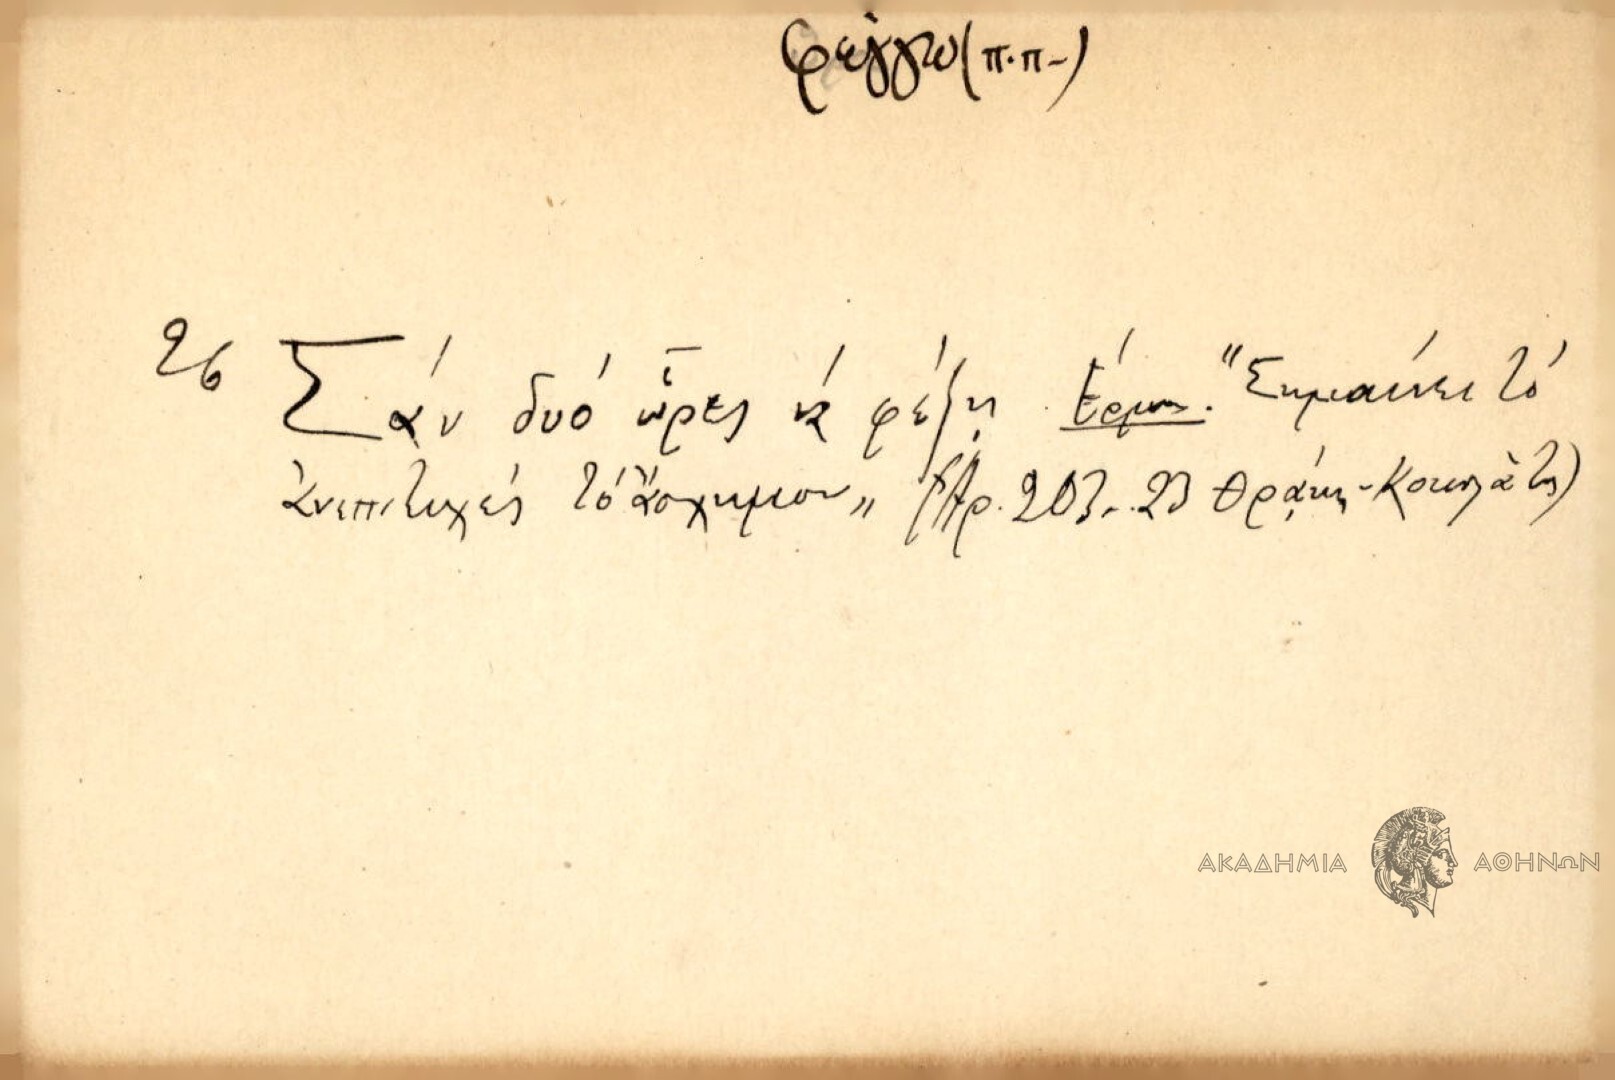 φέγγω (π.π-)
26 Σάν δυό ὧρες νά φέξῃ. Ἑρμ. "Σημαίνει τό
ἀνεπιτυχές τό ἄσχημον„ (Ἀρ. 203. 23 Θράκη-
ΑΚΑΔΗΜΙΑ ΑΘΗΝΩΝ